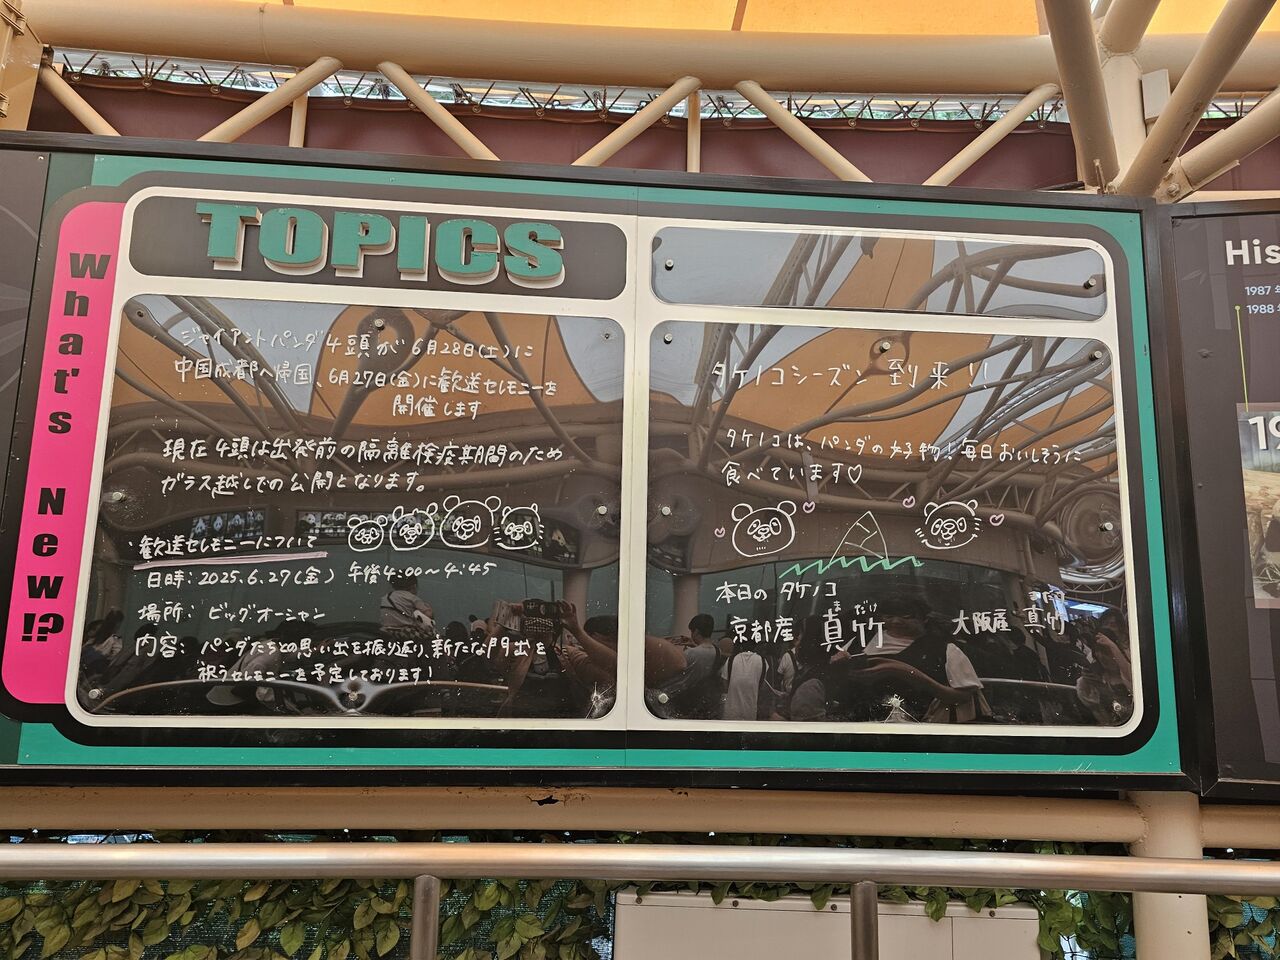 What's New!?
TOPICS
ジャイアントパンダ4頭が6月28日(土)に
中国成都へ帰国、6月27日(金)に歓送セレモニーを
開催します
現在4頭は出発前の隔離検疫期間のため
ガラス越しでの公開となります。
・歓送セレモニーについて
日時:2025.6.27(金) 午後4:00〜4:45
場所:ビッグオーシャン
内容:パンダたちとの思い出を振り返り、新たな門出を
祝うセレモニーを予定しております!
タケノコシーズン到来!!
タケノコは、パンダの好物!毎日おいしそうに
食べています♡
本日のタケノコ
まだけ
京都産 真竹 大阪産 真竹
His
1987年
1988
19